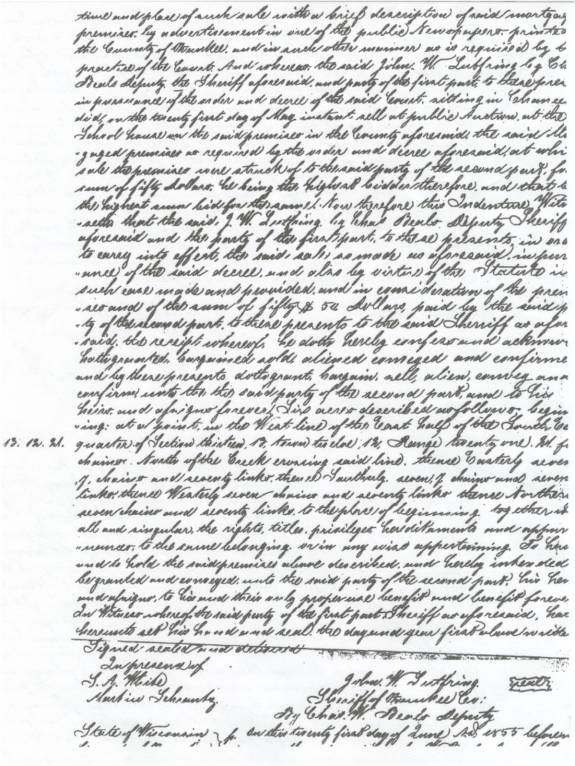 time and place of such sale with a brief description of said mortgag
premises by advertisement in one of the public Newspapers printed
the County of and in such other manner as is required by t
practice of the Court. And whereas the said John. W. by Ch
Beals Deputy the Sheriff aforesaid, and party of the first part to these pres
in pursuance of the order and decree of the said Court, sitting in Chance
did, on the twenty first day of May instant sell at public Auction, at the
School house on the said premises in the County aforesaid, the said Mo
gaged premises as required by the order and decree aforesaid, at whi
sale the premises were struck of to the said party of the second part, fo
sum of fifty Dollars, he being the highest bidder therefore, and that
the highest sum bid for the same. Now therefore this Indenture, Witn
seth that the said J. W. by Chas Beals Deputy Sheriff
aforesaid and the party of the first part, to these presents, in or
to carry into effect, the said sale so made as aforesaid, in pur
ance of the said decree, and also by virtue of the Statute in
such case made and provided, and in consideration of the prem
ises and of the sum of fifty $ 50 Dollars, paid by the said p
ty of the second part, to these presents to the said Sherriff as afor
said, the receipt whereof, he doth hereby confess and acknow
hath granted, bargained sold aliened conveyed and confirme
and by these presents doth grant, bargain, sell, alien, convey and
confirm, unto the the said party of the second part, and to his
heirs, and assigns forever, acres described as follows, begin
ing: at a point, in the West line of the East half of the South
13. 12. 21. quarter of Section thirteen, 13, Town twelve, 12, Range twenty one. 21.
chains. North of the Creek crossing said line, thence Easterly seven
7, chains and seventy links, thence Southerly, seven, 7 chains and seven
links, thence Westerly seven chains and seventy links thence Northern
seven chains and seventy links, to the place of beginning together
all and singular, the rights, titles, privileges hereditaments and appur
nances, to the same belonging or in any wise appertaining. To have
and to hold the said premises above described, and hereby intended
be granted and conveyed, unto the said party of the second part, his hei
and assigns, to his and their only proper use benefit and benefit foreve
In Witness whereof, the said party of the first part, Sheriff as aforesaid, ha
hereunto set his hand and seal, the day and year first above written
Signed sealed and delivered
In presence of
S. A. White John. W. seal
Martin Schrantz Sheriff of Co:
By Chas. W. Beals Deputy
State of Wisconsin } On this twenty first day of June A.D. 1855 before